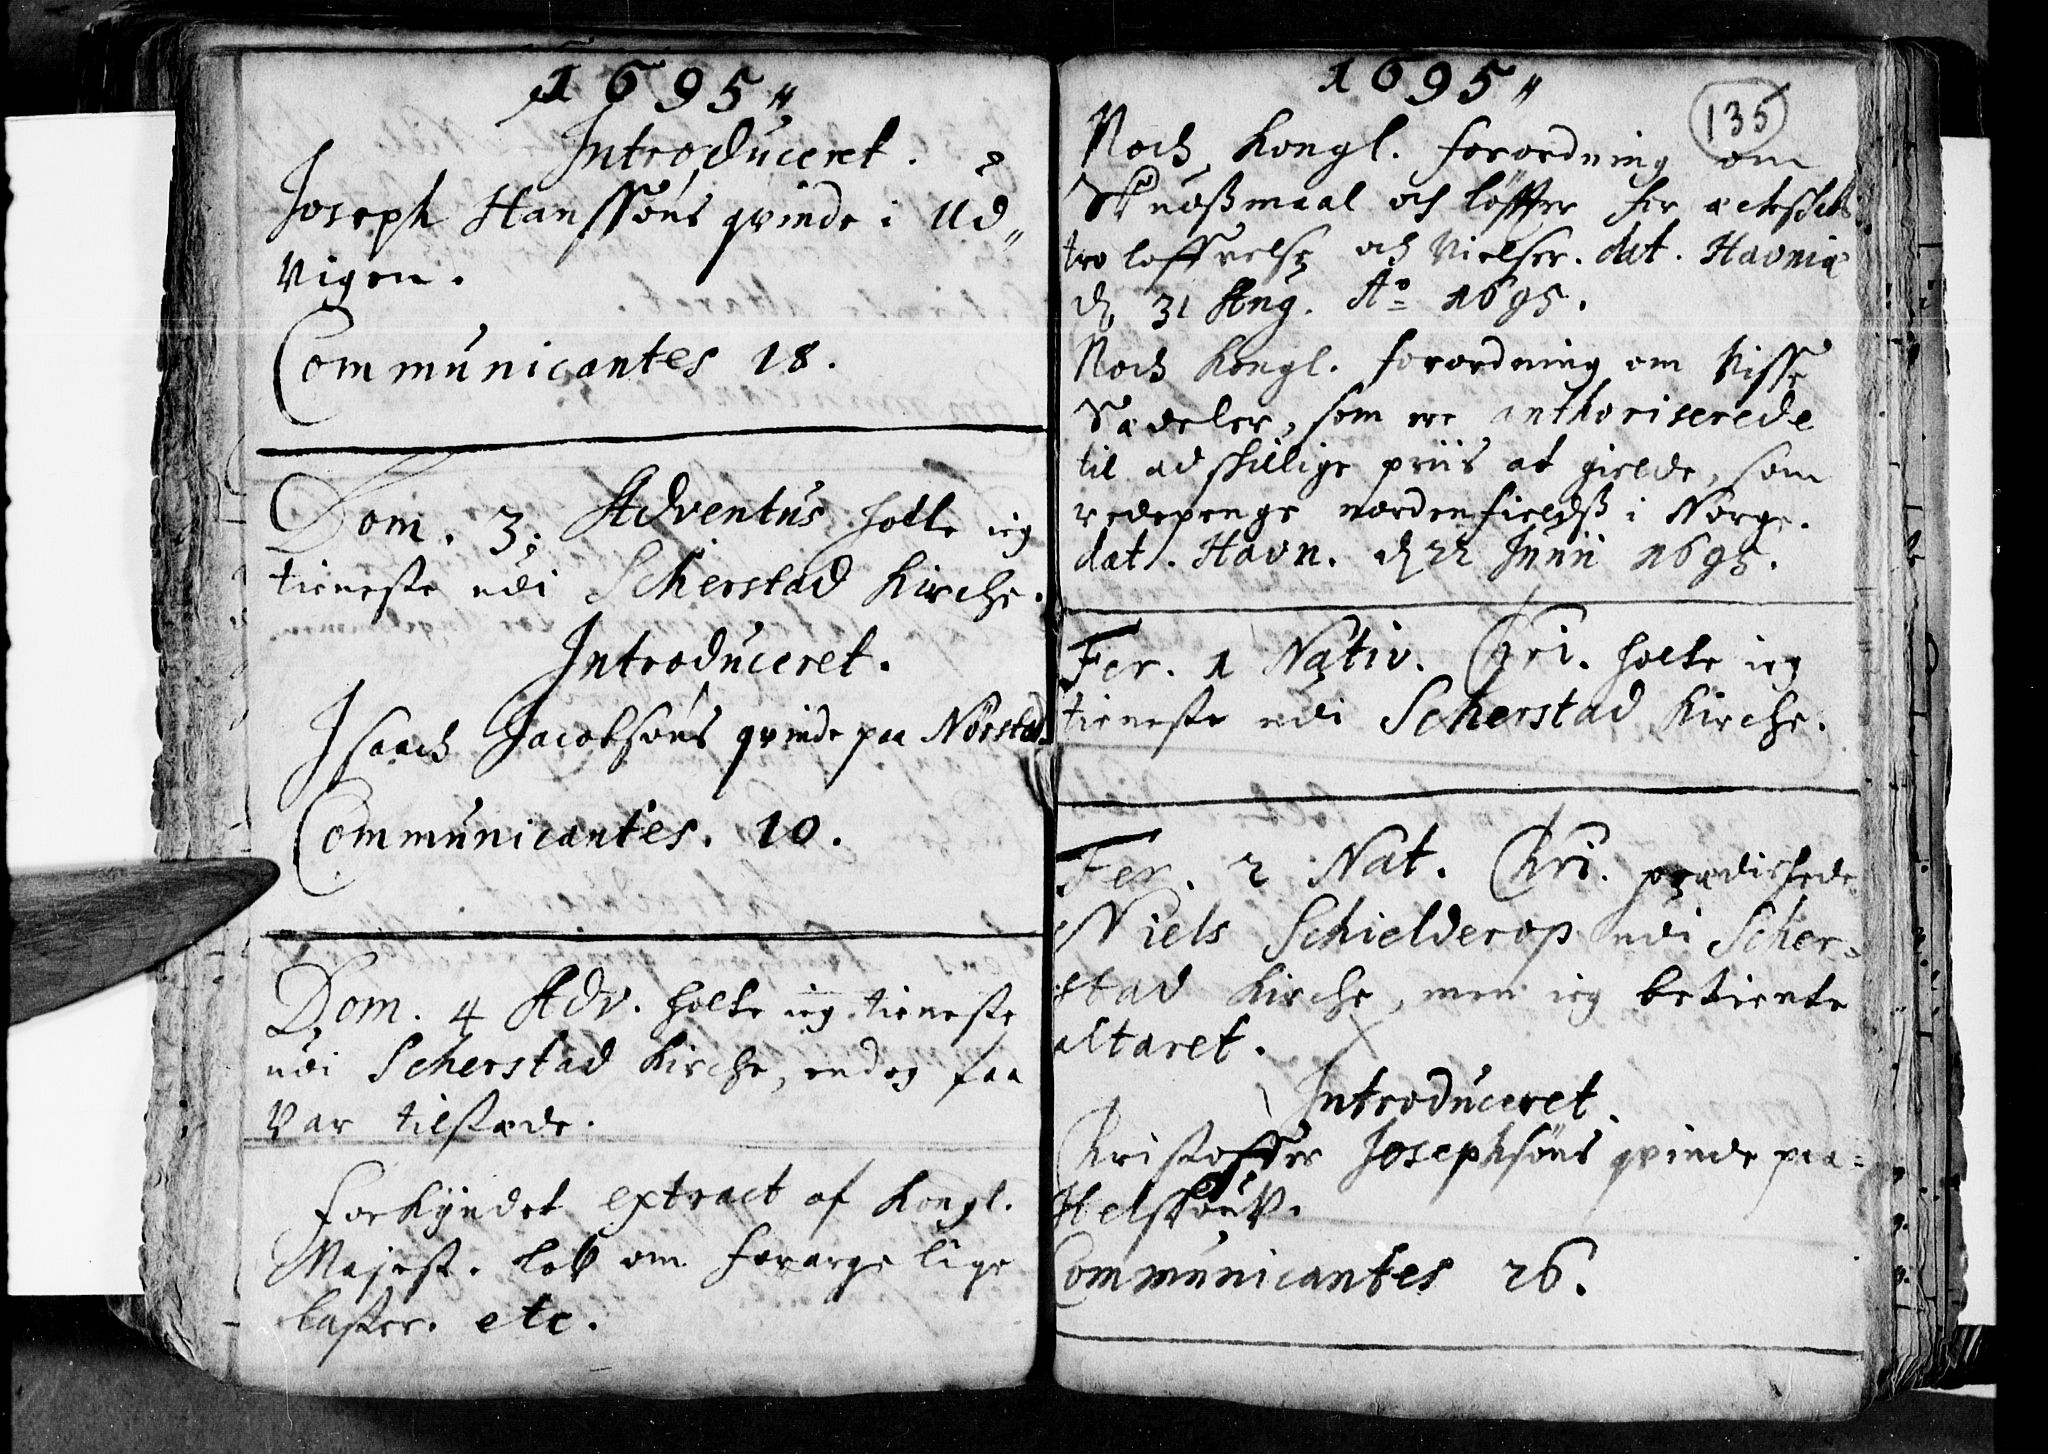 1695„
Introduceret.
Joseph Hanssøns qvinde i Ud„
vigen.
Communicantes 18.
Dom. 3. Adventus holte ieg
tieneste udi Scherstad Kirche.
Introduceret.
Isaach Jacobsøns qvinde paa Nörstad
Communicantes. 10.
Dom. 4 Adv. holte ieg tieneste
udi Scherstad Kirche, endog faa
var tilstæde.
Forkyndet extract af Kongl.
Majest. lov om forargelige
laster. etc.
1695„
135
Noch Kongl. forordning om
och løffter for
troloffvelse och Vielser. dat. Havniæ
d. 31 Aug. Aº 1695.
Noch Kongl. forordning om Visse
Sædeler, som ere authoriserede
til adskillige priis at gielde, som
redepenge nordenfieldß i Norge.
dat. Havn. d. 22 Junii 1695.
Fer. 1 Nativ. Chri. holte ieg
tieneste udi Scherstad Kirche.
Fer. 2 Nat. Chri. prædichede
Niels Schielderop udi Scher=
stad Kirche, men ieg betiente
altaret.
Introduceret.
Christoffer Josephsøns qvinde paa

Communicantes 26.